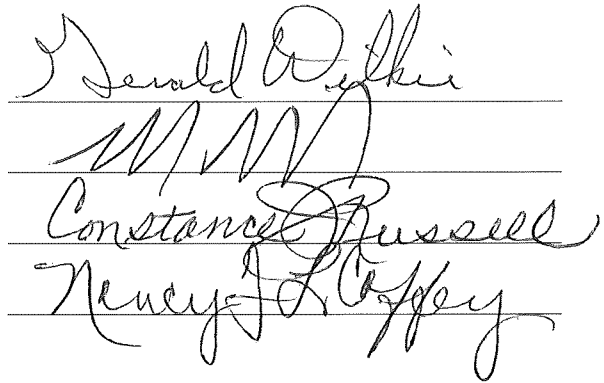 Gerald Wilkie
Constance J Russell
Nancy J L Coffey